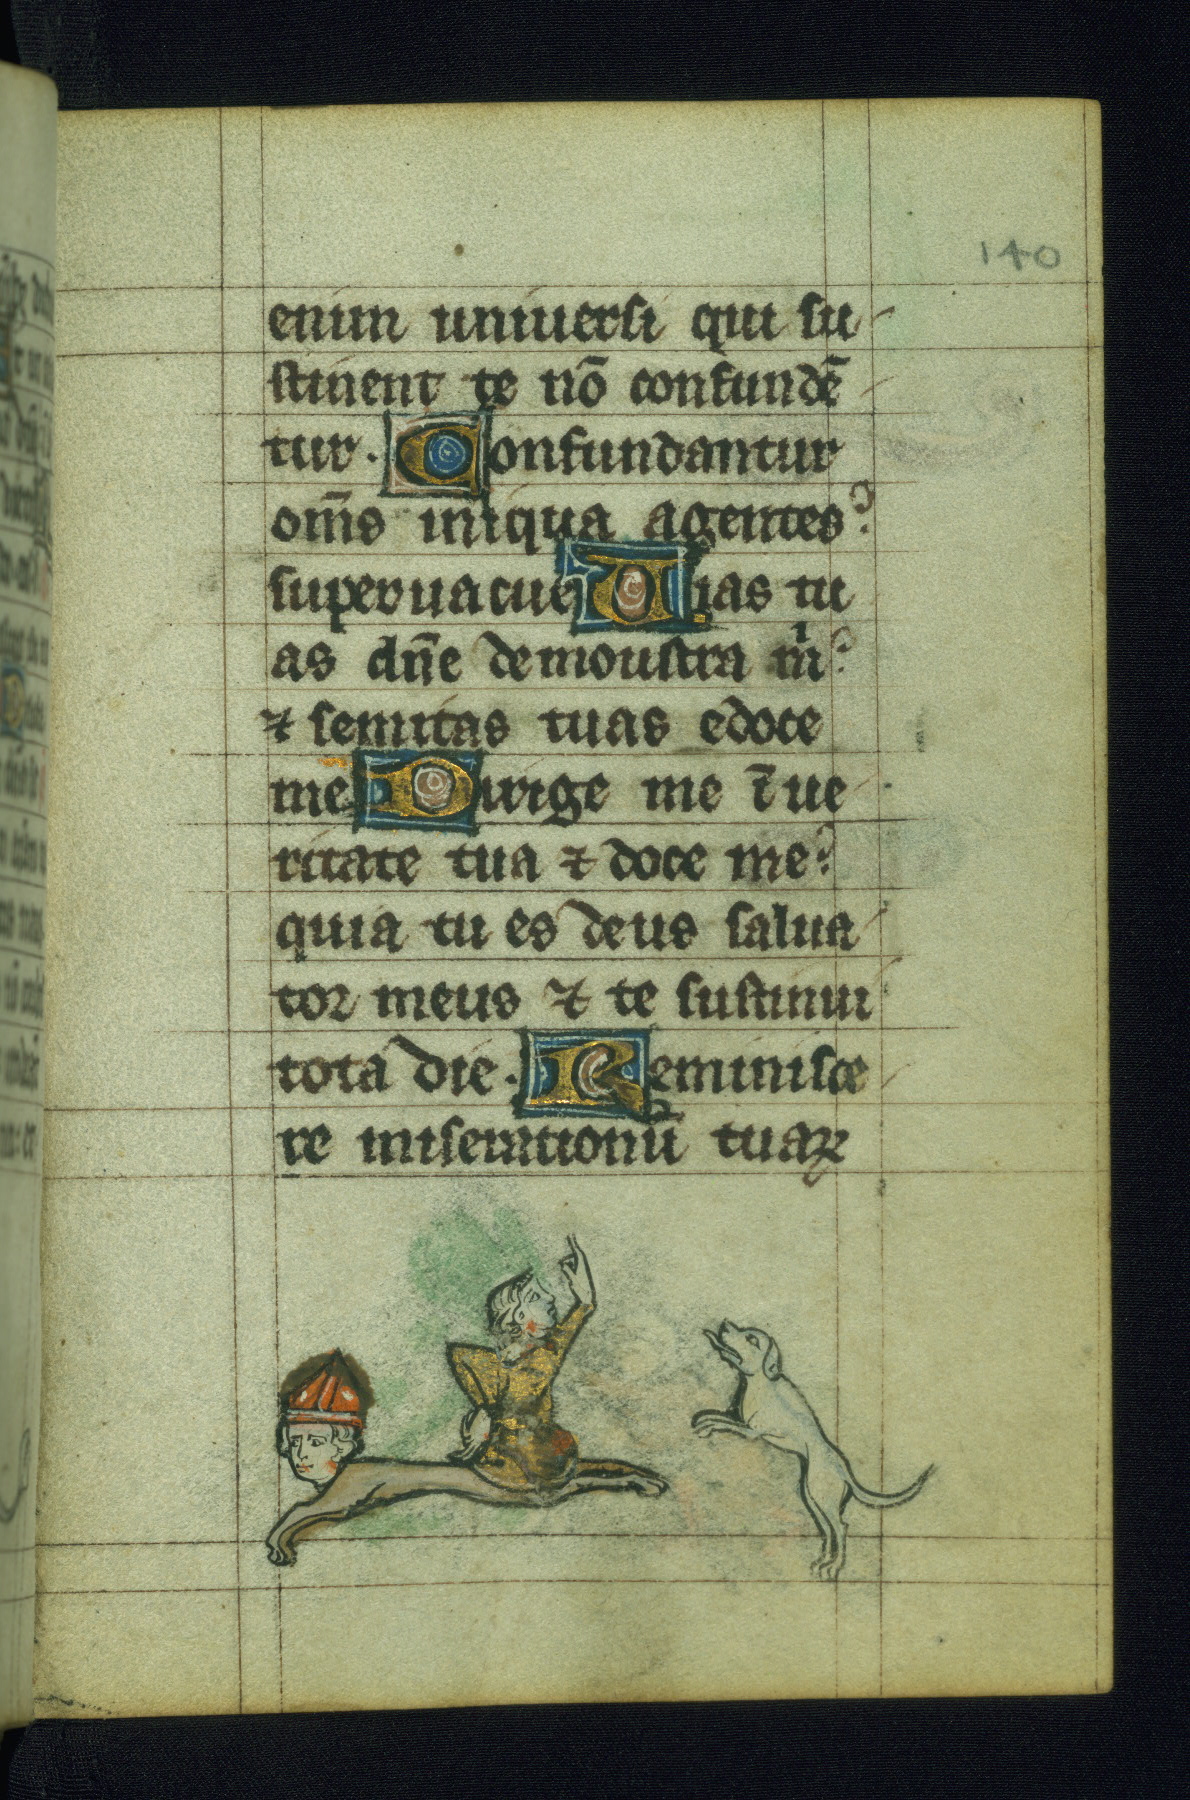 140
enim uniuersi qui su
stinent te nō confundē
tur. Confundantur
om̄s iniqua agentes
superuacue Uias tu
as dn̄e demonstra m̍
⁊ semitas tuas edoce
me Dirige me ī ue
ritate tua ⁊ doce me
quia tu es deus salua
tor meus ⁊ te sustinui
tota die. Reminisce
re miserationū tuaꝝ